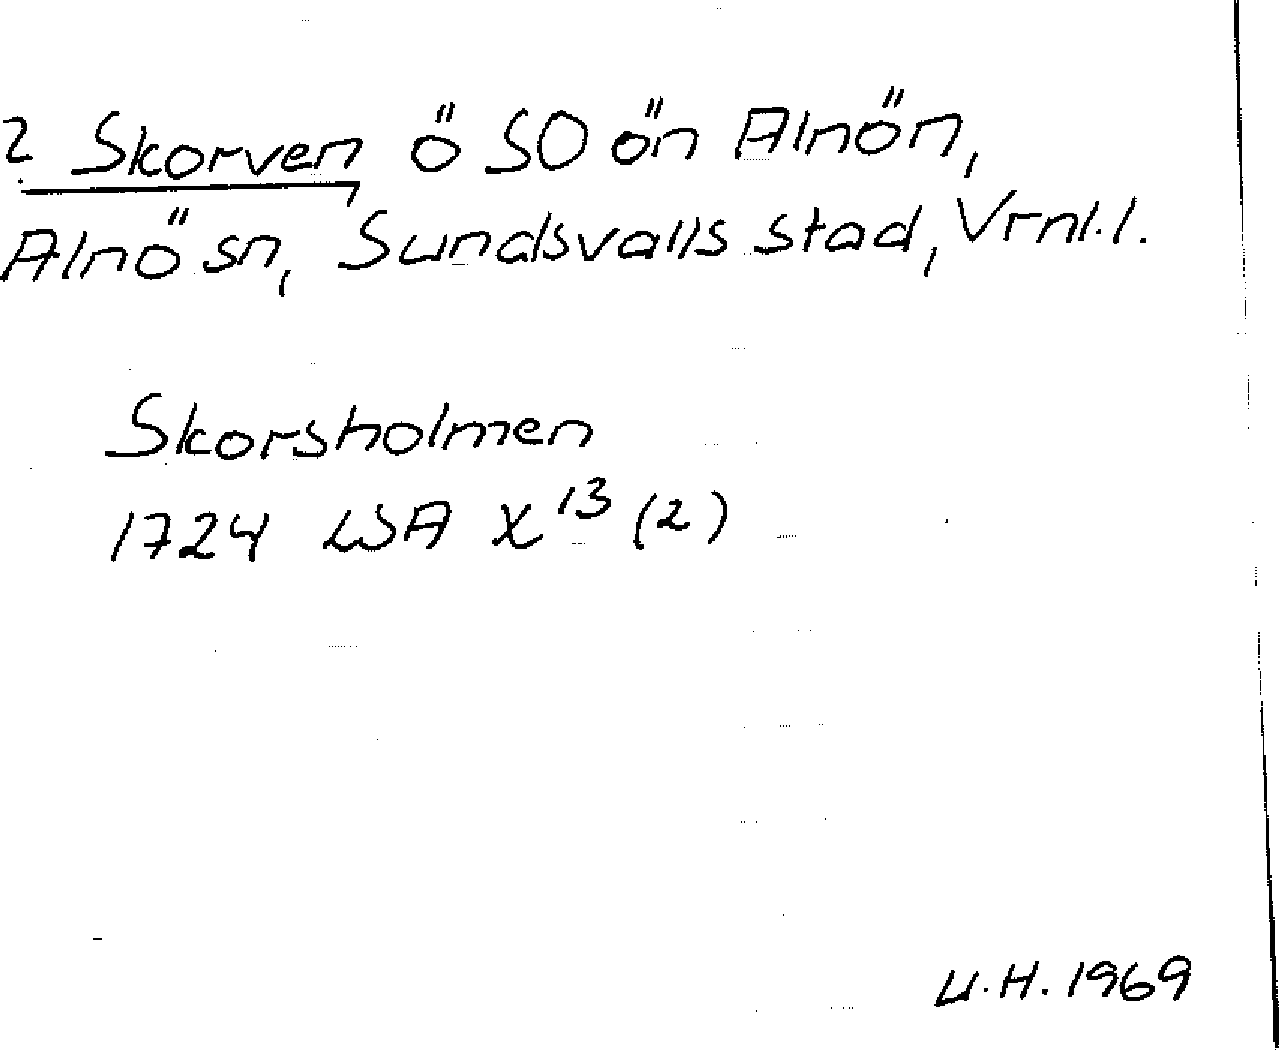 ? Skorven ö SO ön Alnön,
Alnö sn, Sundsvalls stad, Vrnl.l.
Skorsholmen
1724 LSA X¹³ (2)
U.H. 1969